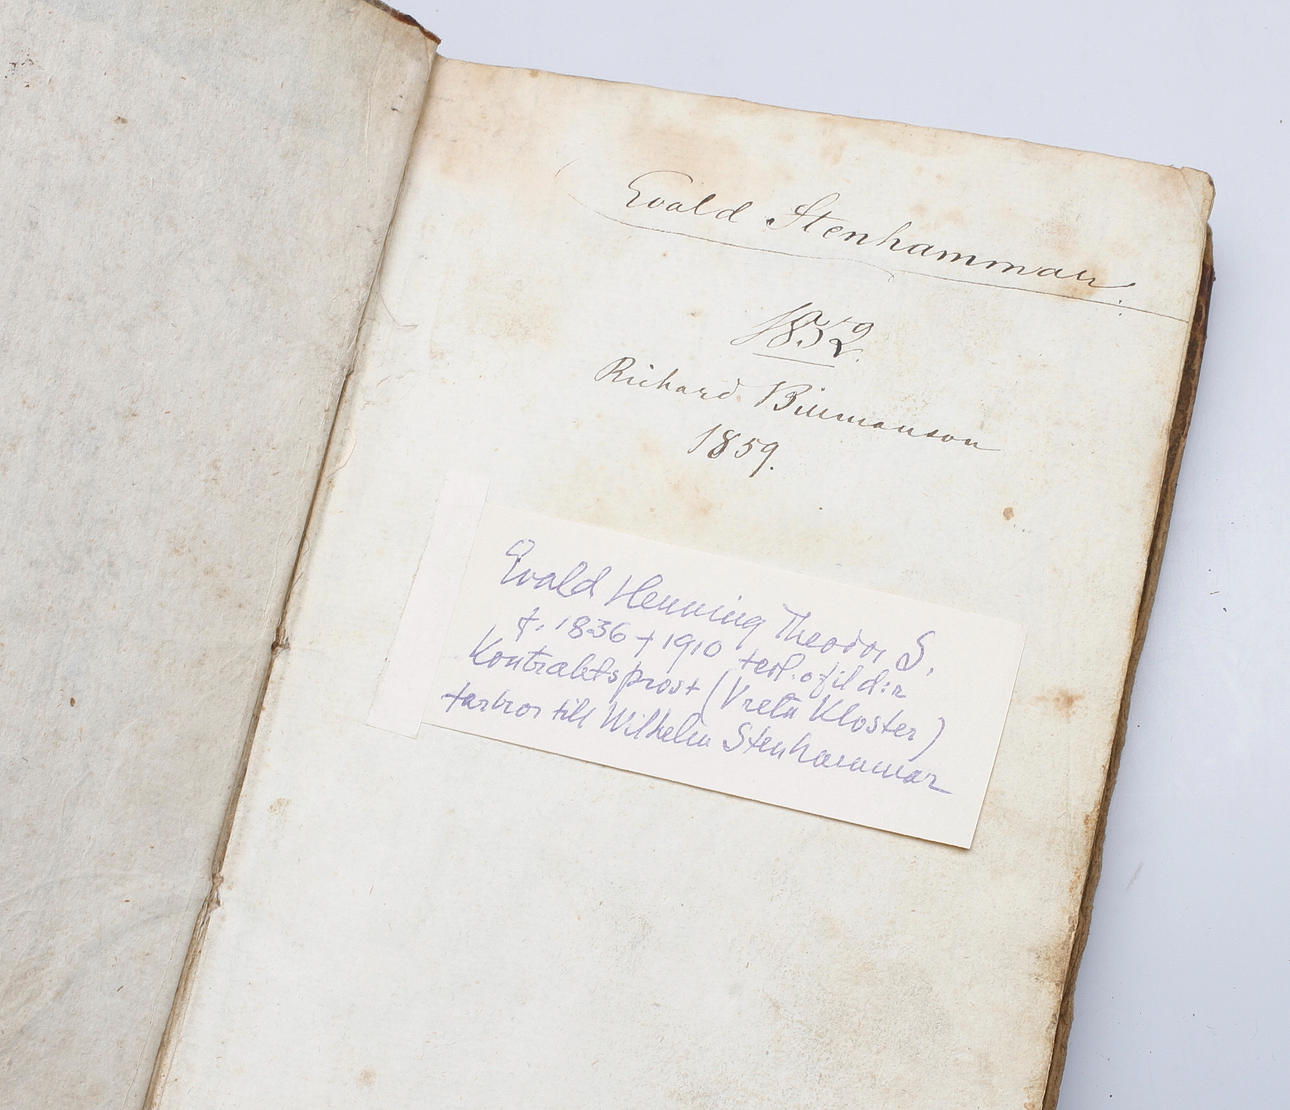 Evald Stenhammar.
1852.
Richard Billmanson
1859.
Evald Henning Theodor S.
f. 1836 † 1910 teol. o fil d:r
Kontraktsprost (Vreta Kloster)
farbror till Wilhelm Stenhammar